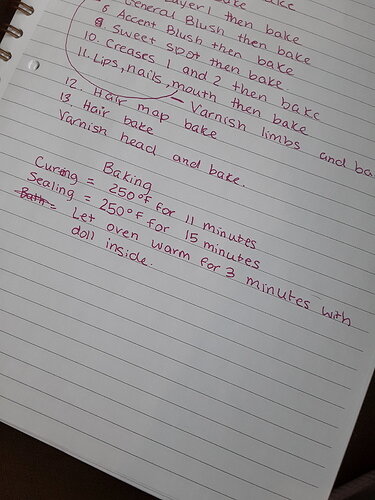 bake
layer 1 then bake
General Blush then bake
Accent Blush then bake
9 Sweet spot then bake
10. Creases 1 and 2 then bake
11. Lips, nails, mouth then bake
— Varnish limbs and ba
12. Hair map bake
13. Hair bake
Varnish head and bake.
Baking
Curing = 250°f for 11 minutes
Sealing = 250°f for 15 minutes
Bath = Let oven warm for 3 minutes with
doll inside.